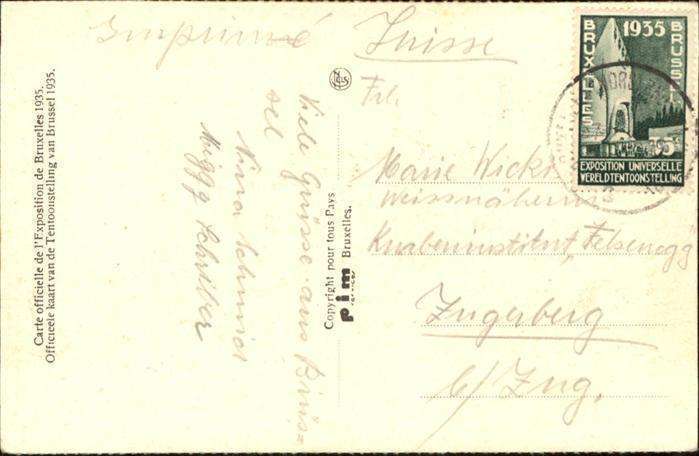 Imprimé
Suisse
BRUXELLES
1935
BRUSSEL
EXPOSITION UNIVERSELLE
WERELDTENTOONSTELLING
Carte officielle de l'Exposition de Bruxelles 1935.
Officieele kaart van de Tentoonstelling van Brussel 1935.
Viele Grüsse aus Brüs=
sel
Nina Schmid
Meggy Schriber
Copyright pour tous Pays
pim Bruxelles.
Frl.
Marie Wick
Weissnäherin
Knabeninstitut, Felsenegg
Zugerberg
b/Zug.